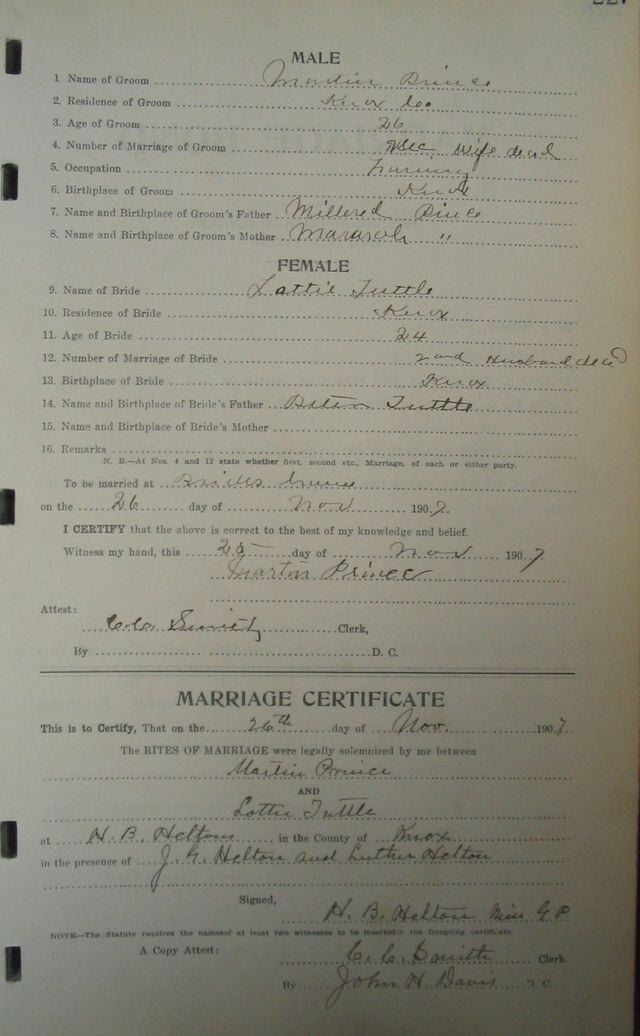 227
MALE
1. Name of Groom Martin Prince
2. Residence of Groom Knox Co
3. Age of Groom 26
4. Number of Marriage of Groom Sec, Wife dead
5. Occupation Farming
6. Birthplace of Groom Knox
7. Name and Birthplace of Groom's Father Millered Prince
8. Name and Birthplace of Groom's Mother "
FEMALE
9. Name of Bride Lottie Tuttle
10. Residence of Bride Knox
11. Age of Bride 24
12. Number of Marriage of Bride 2nd Husband dead
13. Birthplace of Bride Knox
14. Name and Birthplace of Bride's Father Tuttle
15. Name and Birthplace of Bride's Mother
16. Remarks
N. B.—At Nos. 4 and 12 state whether first, second etc., Marriage, of each or either party.
To be married at Brides
on the 26 day of Nov 1907.
I CERTIFY that the above is correct to the best of my knowledge and belief.
Witness my hand, this 25 day of Nov 1907
Martin Prince
Attest:
C.C. Smith Clerk,
By D. C.
MARRIAGE CERTIFICATE
This is to Certify, That on the 26th day of Nov. 1907
The RITES OF MARRIAGE were legally solemnized by me between
Martin Prince
AND
Lottie Tuttle
at H. B. Heltons in the County of Knox
in the presence of J. G. Helton and Luther Helton
Signed,
H. B. Helton Min G P
NOTE—The Statute requires the names of at least two witnesses to be inserted in the foregoing certificate.
A Copy Attest: C. C. Smith Clerk.
By John H. Davis D C